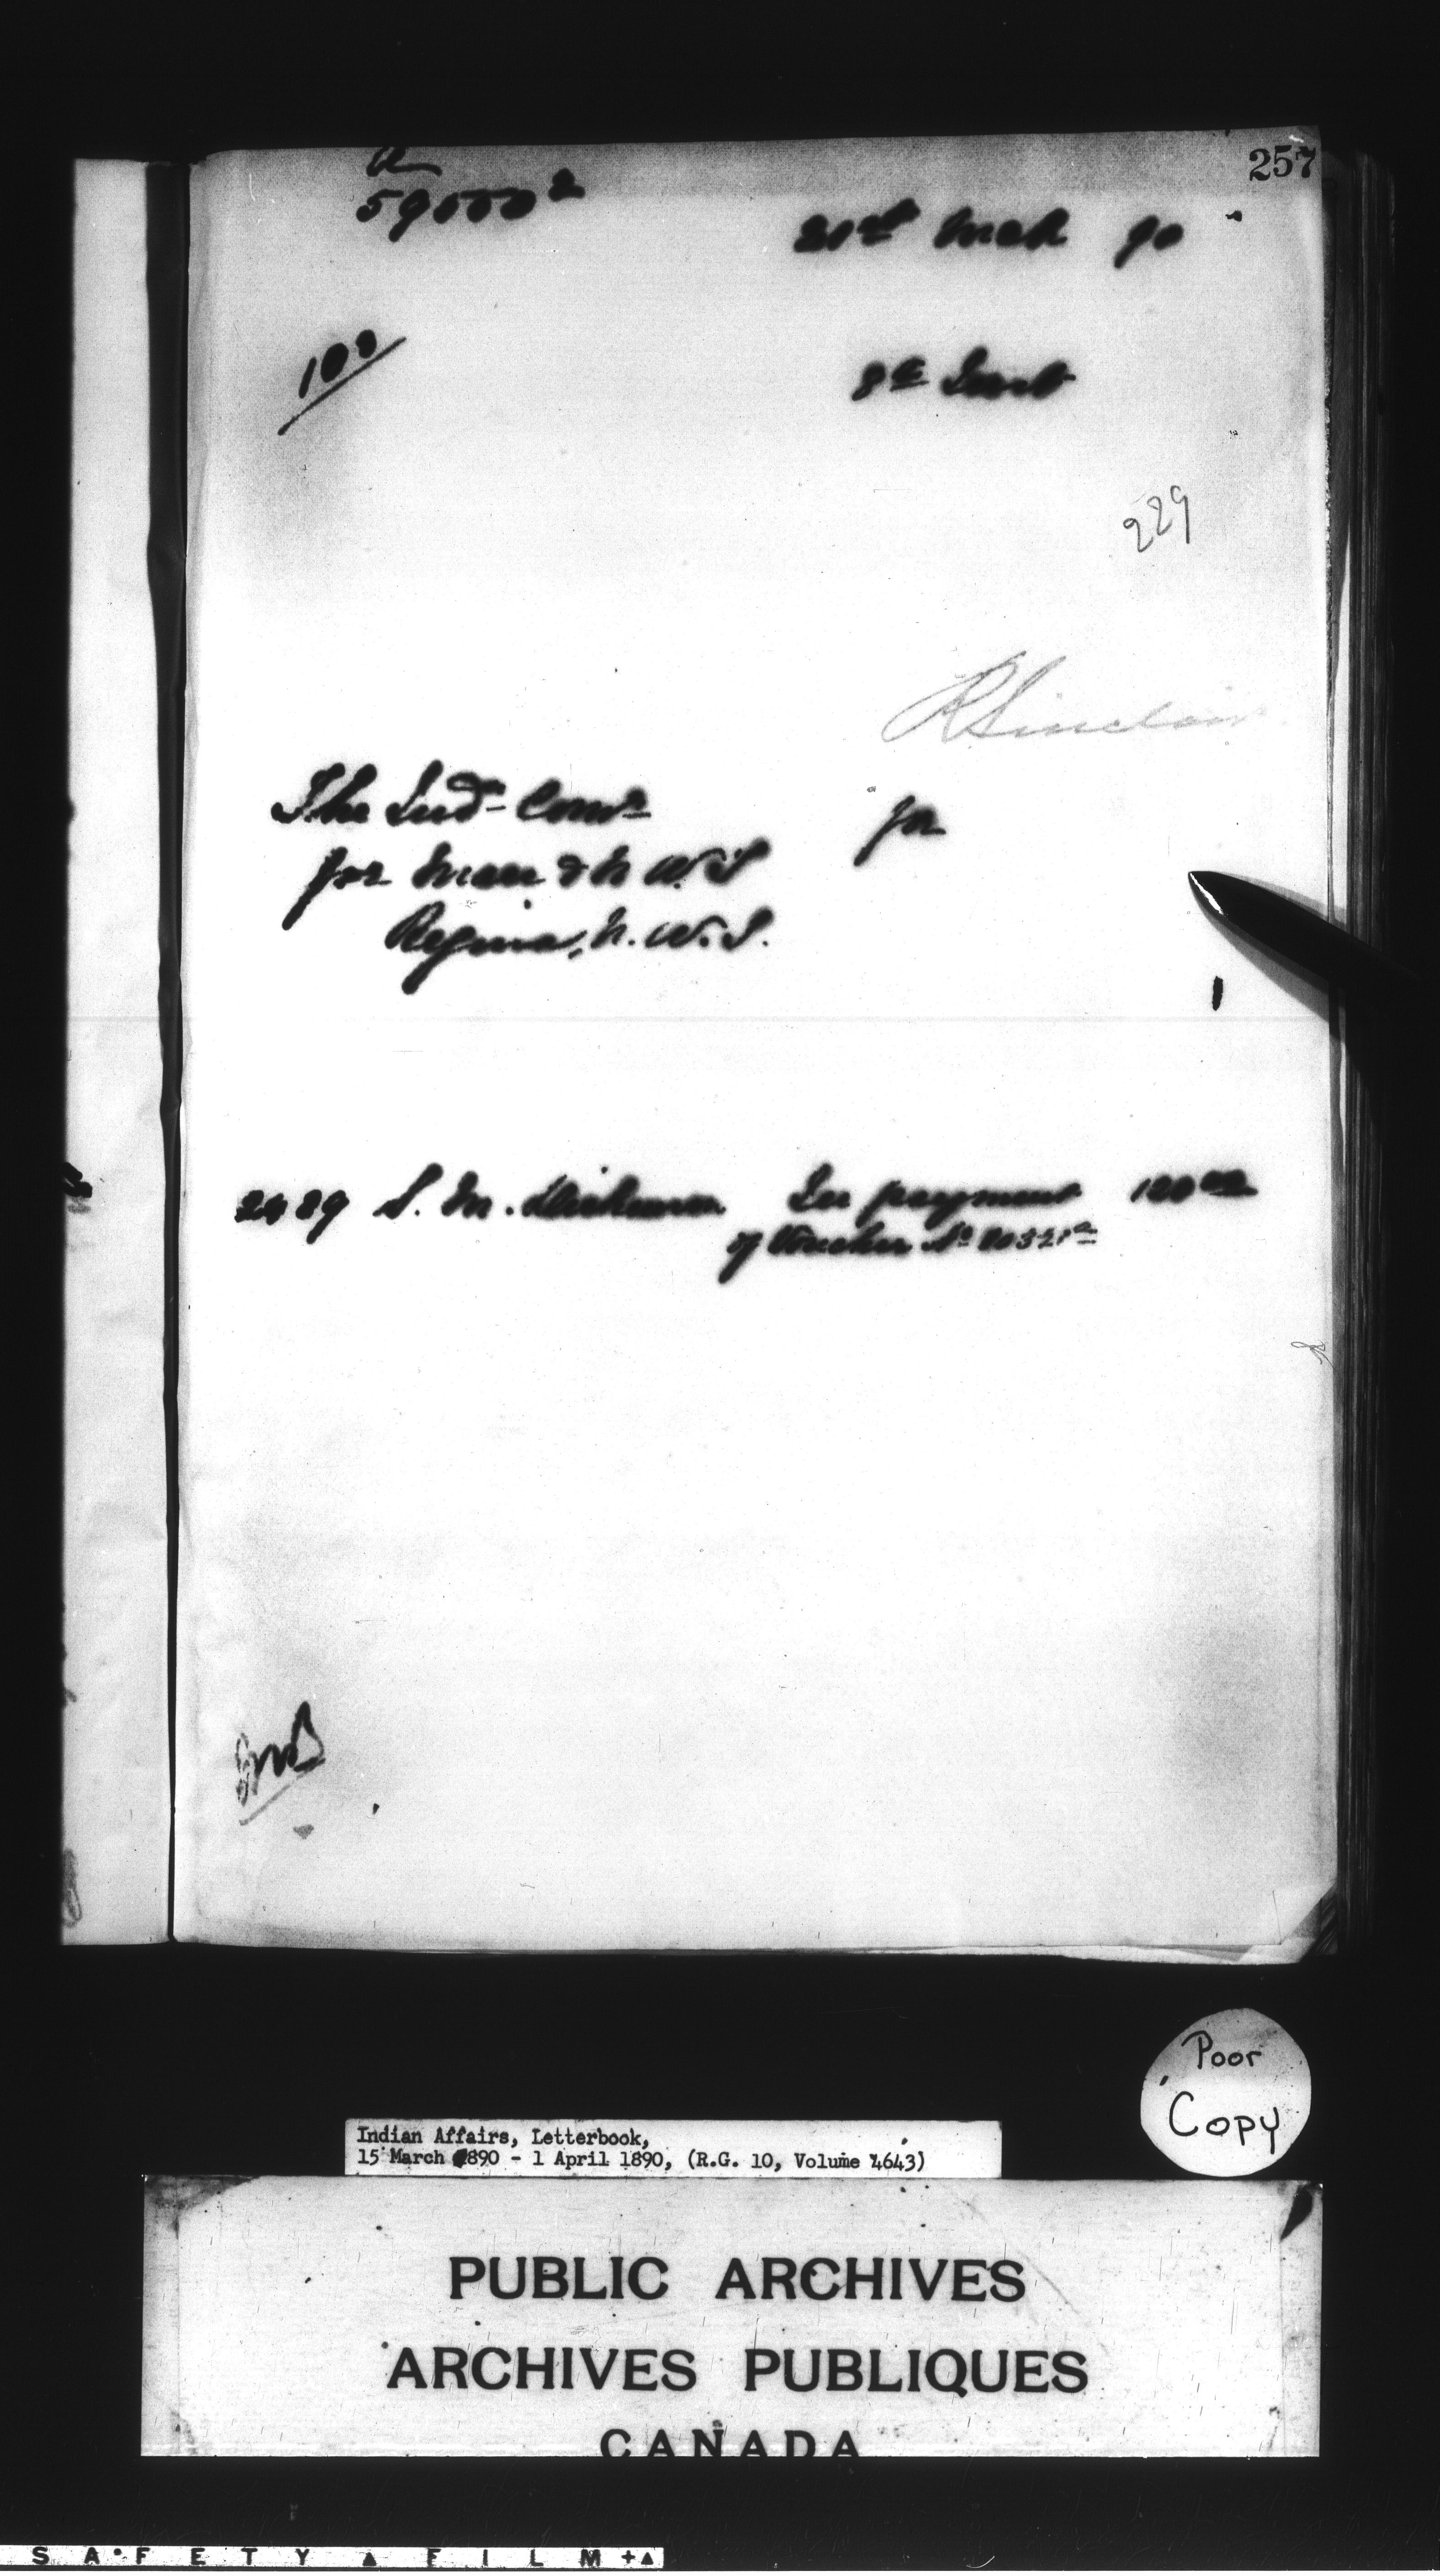 257
21st Mch 90
100
8th Inst
229
R Sinclair
The Indn Comr
for
for Man & N W. T
Regina, N. W. T.
2489 S. M. Dickinson In payment
of Voucher No
BMB
Poor
Copy
Indian Affairs, Letterbook,
15 March 1890 - 1 April 1890, (R.G. 10, Volume 4643)
PUBLIC ARCHIVES
ARCHIVES PUBLIQUES
CANADA
SAFETY FILM